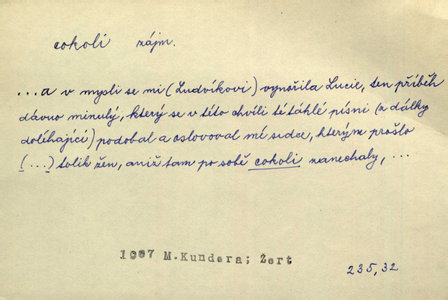 cokoli zájm.
...a v mysli se mi (Ludvíkovi) vynořila Lucie, ten příběh
dávno minulý, který se v této chvíli té táhlé písni (z dálky
doléhající) podobal a oslovoval mé srdce, kterým prošlo
(...) tolik žen, aniž tam po sobě cokoli zanechaly, ...
1967 M.Kundera; Žert
235,32